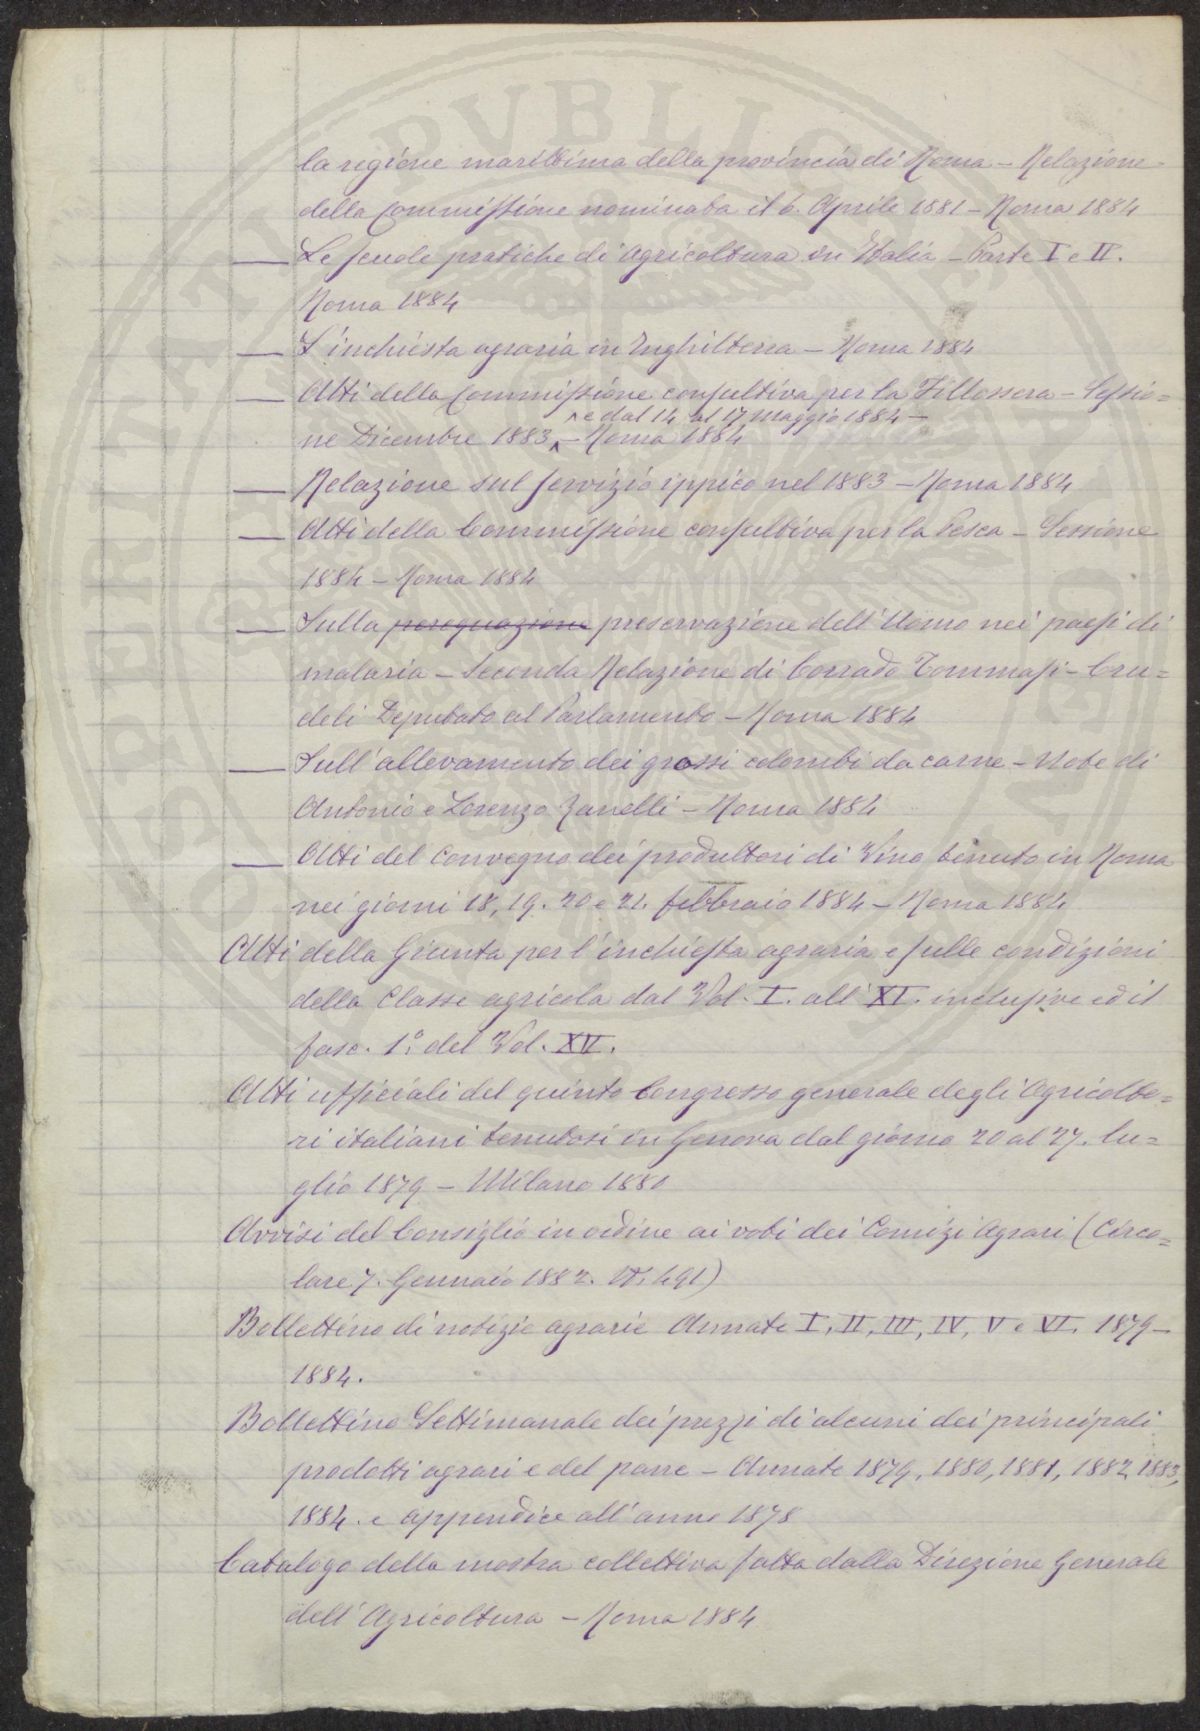 la regione marittima della provincia di Roma – Relazione
della Commissione nominata il 6. Aprile 1881 – Roma 1884
— Le scuole pratiche di agricoltura in Italia – Parte I e II.
Roma 1884
— L'inchiesta agraria in Inghilterra – Roma 1884
— Atti della Commissione consultiva per la Fillossera – Sessio=
e dal 14 al 17 maggio 1884 –
ne Dicembre 1883 – Roma 1884
— Relazione sul servizio ippico nel 1883 – Roma 1884
— Atti della Commissione consultiva per la Pesca – Sessione
1884 – Roma 1884
— Sulla perequazione preservazione dell'Uomo nei paesi di
malaria – Seconda Relazione di Corrado Tommasi-Cru=
deli Deputato al Parlamento – Roma 1884
— Sull'allevamento dei grossi colombi da carne – Note di
Antonio e Lorenzo Zanelli – Roma 1884
— Atti del Convegno dei produttori di Vino tenuto in Roma
nei giorni 18, 19. 20 e 21. febbraio 1884 – Roma 1884
Atti della Giunta per l'inchiesta agraria e sulle condizioni
della Classe agricola dal Vol. I. all'XI. inclusive ed il
fasc. 1º del Vol. XV.
Atti ufficiali del quinto Congresso generale degli Agricolto=
ri italiani tenutosi in Genova dal giorno 20 al 27. lu=
glio 1879 – Milano 1880
Avvisi del Consiglio in ordine ai voti dei Comizi Agrari (Circo=
lare 7. Gennaio 1882. N. 491)
Bollettino di notizie agrarie Annate I, II, III, IV, V e VI. 1879–
1884.
Bollettino Settimanale dei prezzi di alcuni dei principali
prodotti agrari e del pane – Annate 1879, 1880, 1881, 1882, 1883,
1884. e appendice all'anno 1878
Catalogo della mostra collettiva fatta dalla Direzione Generale
dell'Agricoltura – Roma 1884